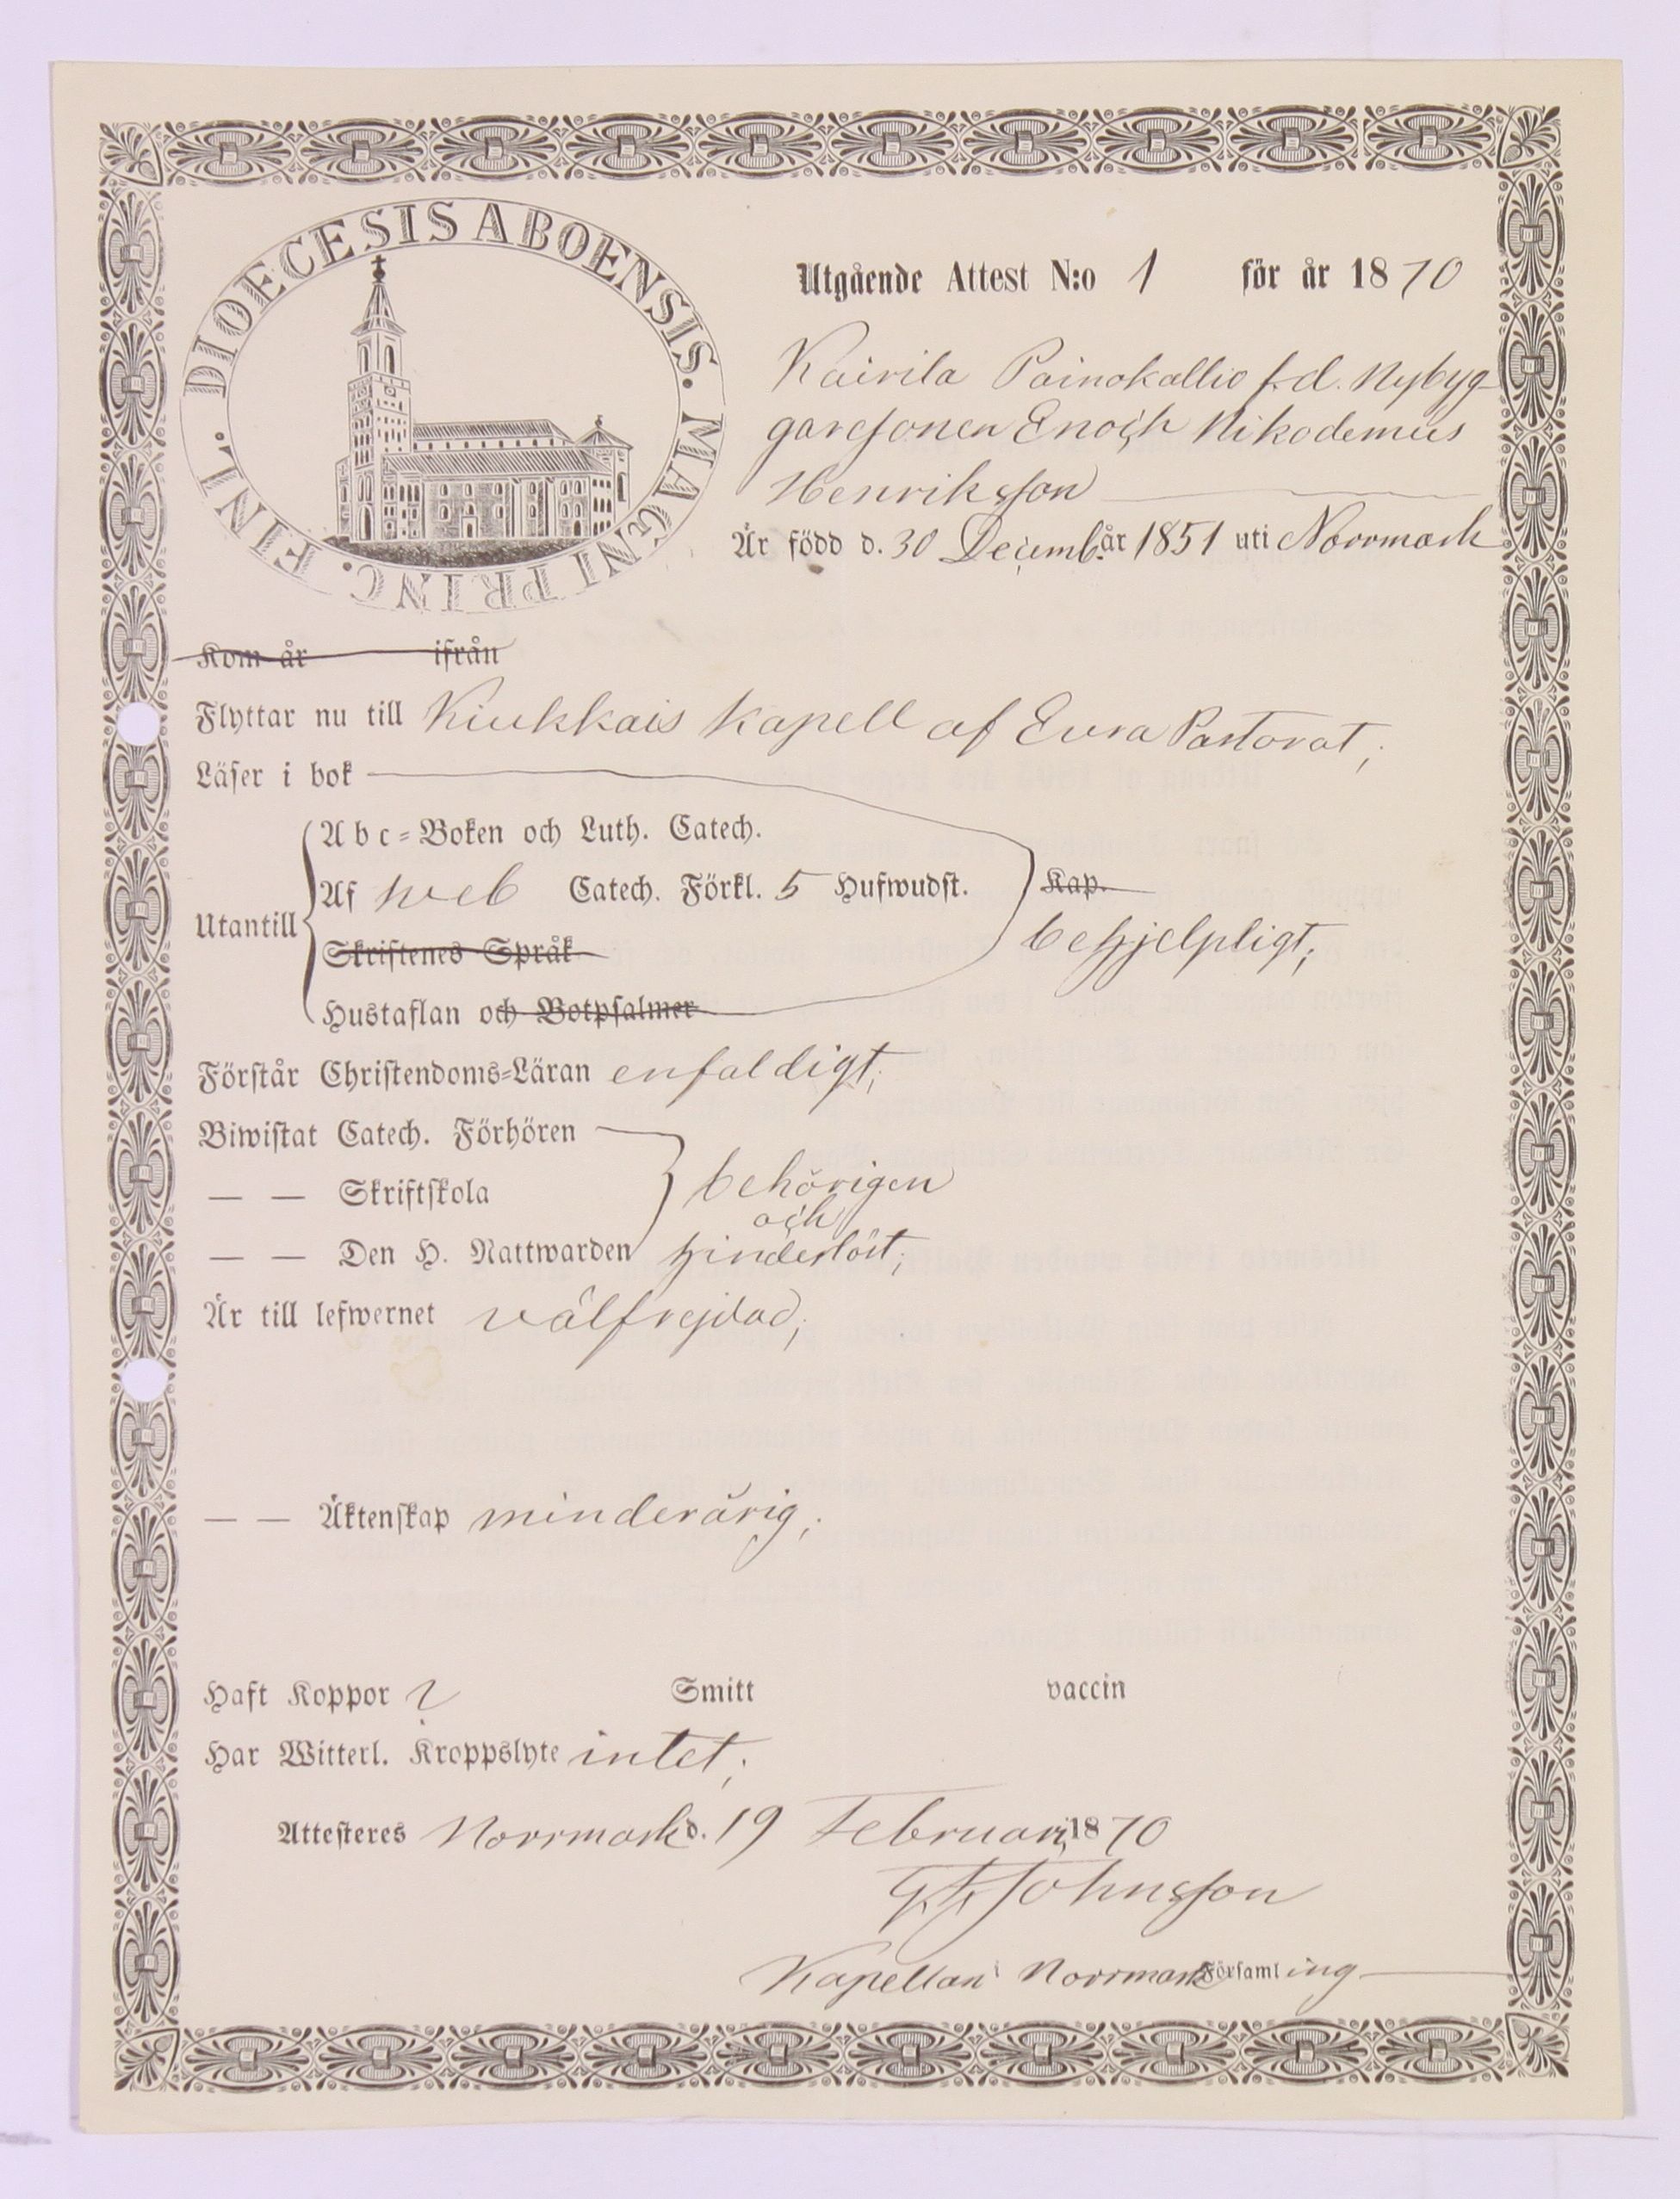 DIOECESIS ABOENSIS. MAGNI PRINC. FINL.
Utgående Attest N:o 1 för år 1870
Kairila Painokallio f.d. Nybyg-
garesonen Enoch Nikodemus
Henriksson
Är född d. 30 Decemb. år 1851 uti Norrmark
Kom år ifrån
Flyttar nu till Kiukkais Kapell af Eura Pastorat;
Läser i bok
Abc-Boken och Luth. Catech.
Utantill Af Sveb Catech. Förkl. 5 Hufwudst. Kap.
Skriftenes Språk behjelpligt;
Hustaflan och Botpsalmer
Förstår Christendoms-Läran enfaldigt;
Biwistat Catech. Förhören
— — Skriftskola behörigen
och
— — Den H. Nattwarden hinderlöst;
Är till lefwernet välfrejdad;
— — Äktenskap minderårig;
Haft Koppor Smitt vaccin
Har Witterl. Kroppslyte intet;
Attesteres Norrmark d. 19 Februari 1870
Johnsson
Kapellan i Norrmark Församling